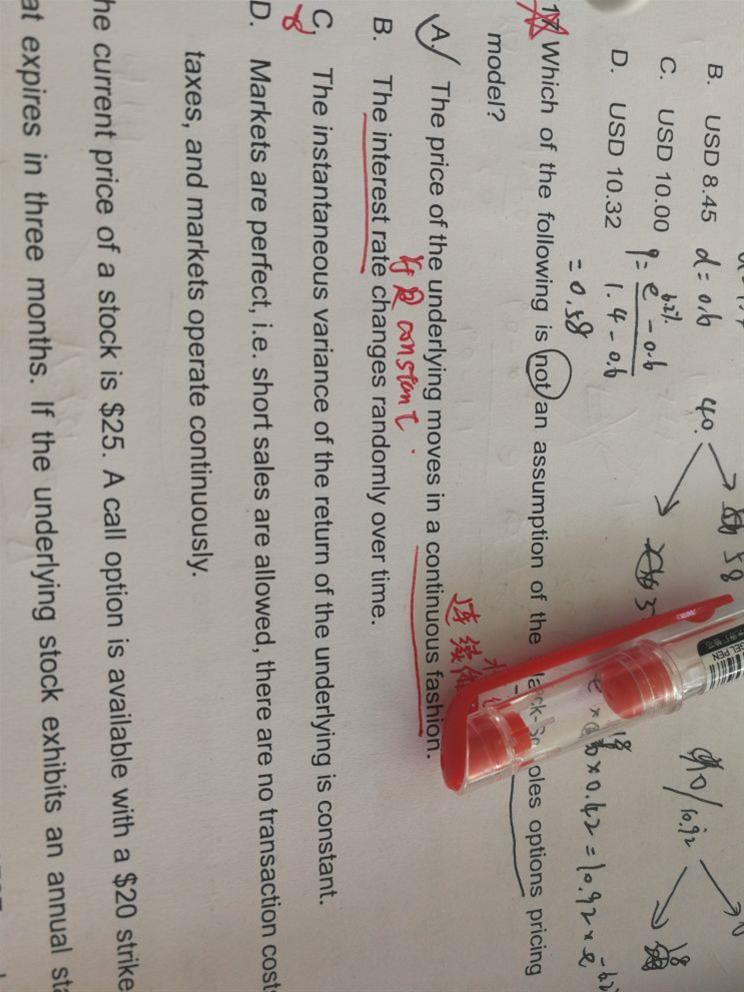 B. USD 8.45 d = 0.6
C. USD 10.00
D. USD 10.32 1.4 - 0.6
= 0.58
40.
58
10.92
18
Which of the following is not an assumption of the oles options pricing
model?
A. The price of the underlying moves in a continuous fashion.
连续
constant.
B. The interest rate changes randomly over time.
C. The instantaneous variance of the return of the underlying is constant.
D. Markets are perfect, i.e. short sales are allowed, there are no transaction costs
taxes, and markets operate continuously.
he current price of a stock is $25. A call option is available with a $20 strike
at expires in three months. If the underlying stock exhibits an annual sta